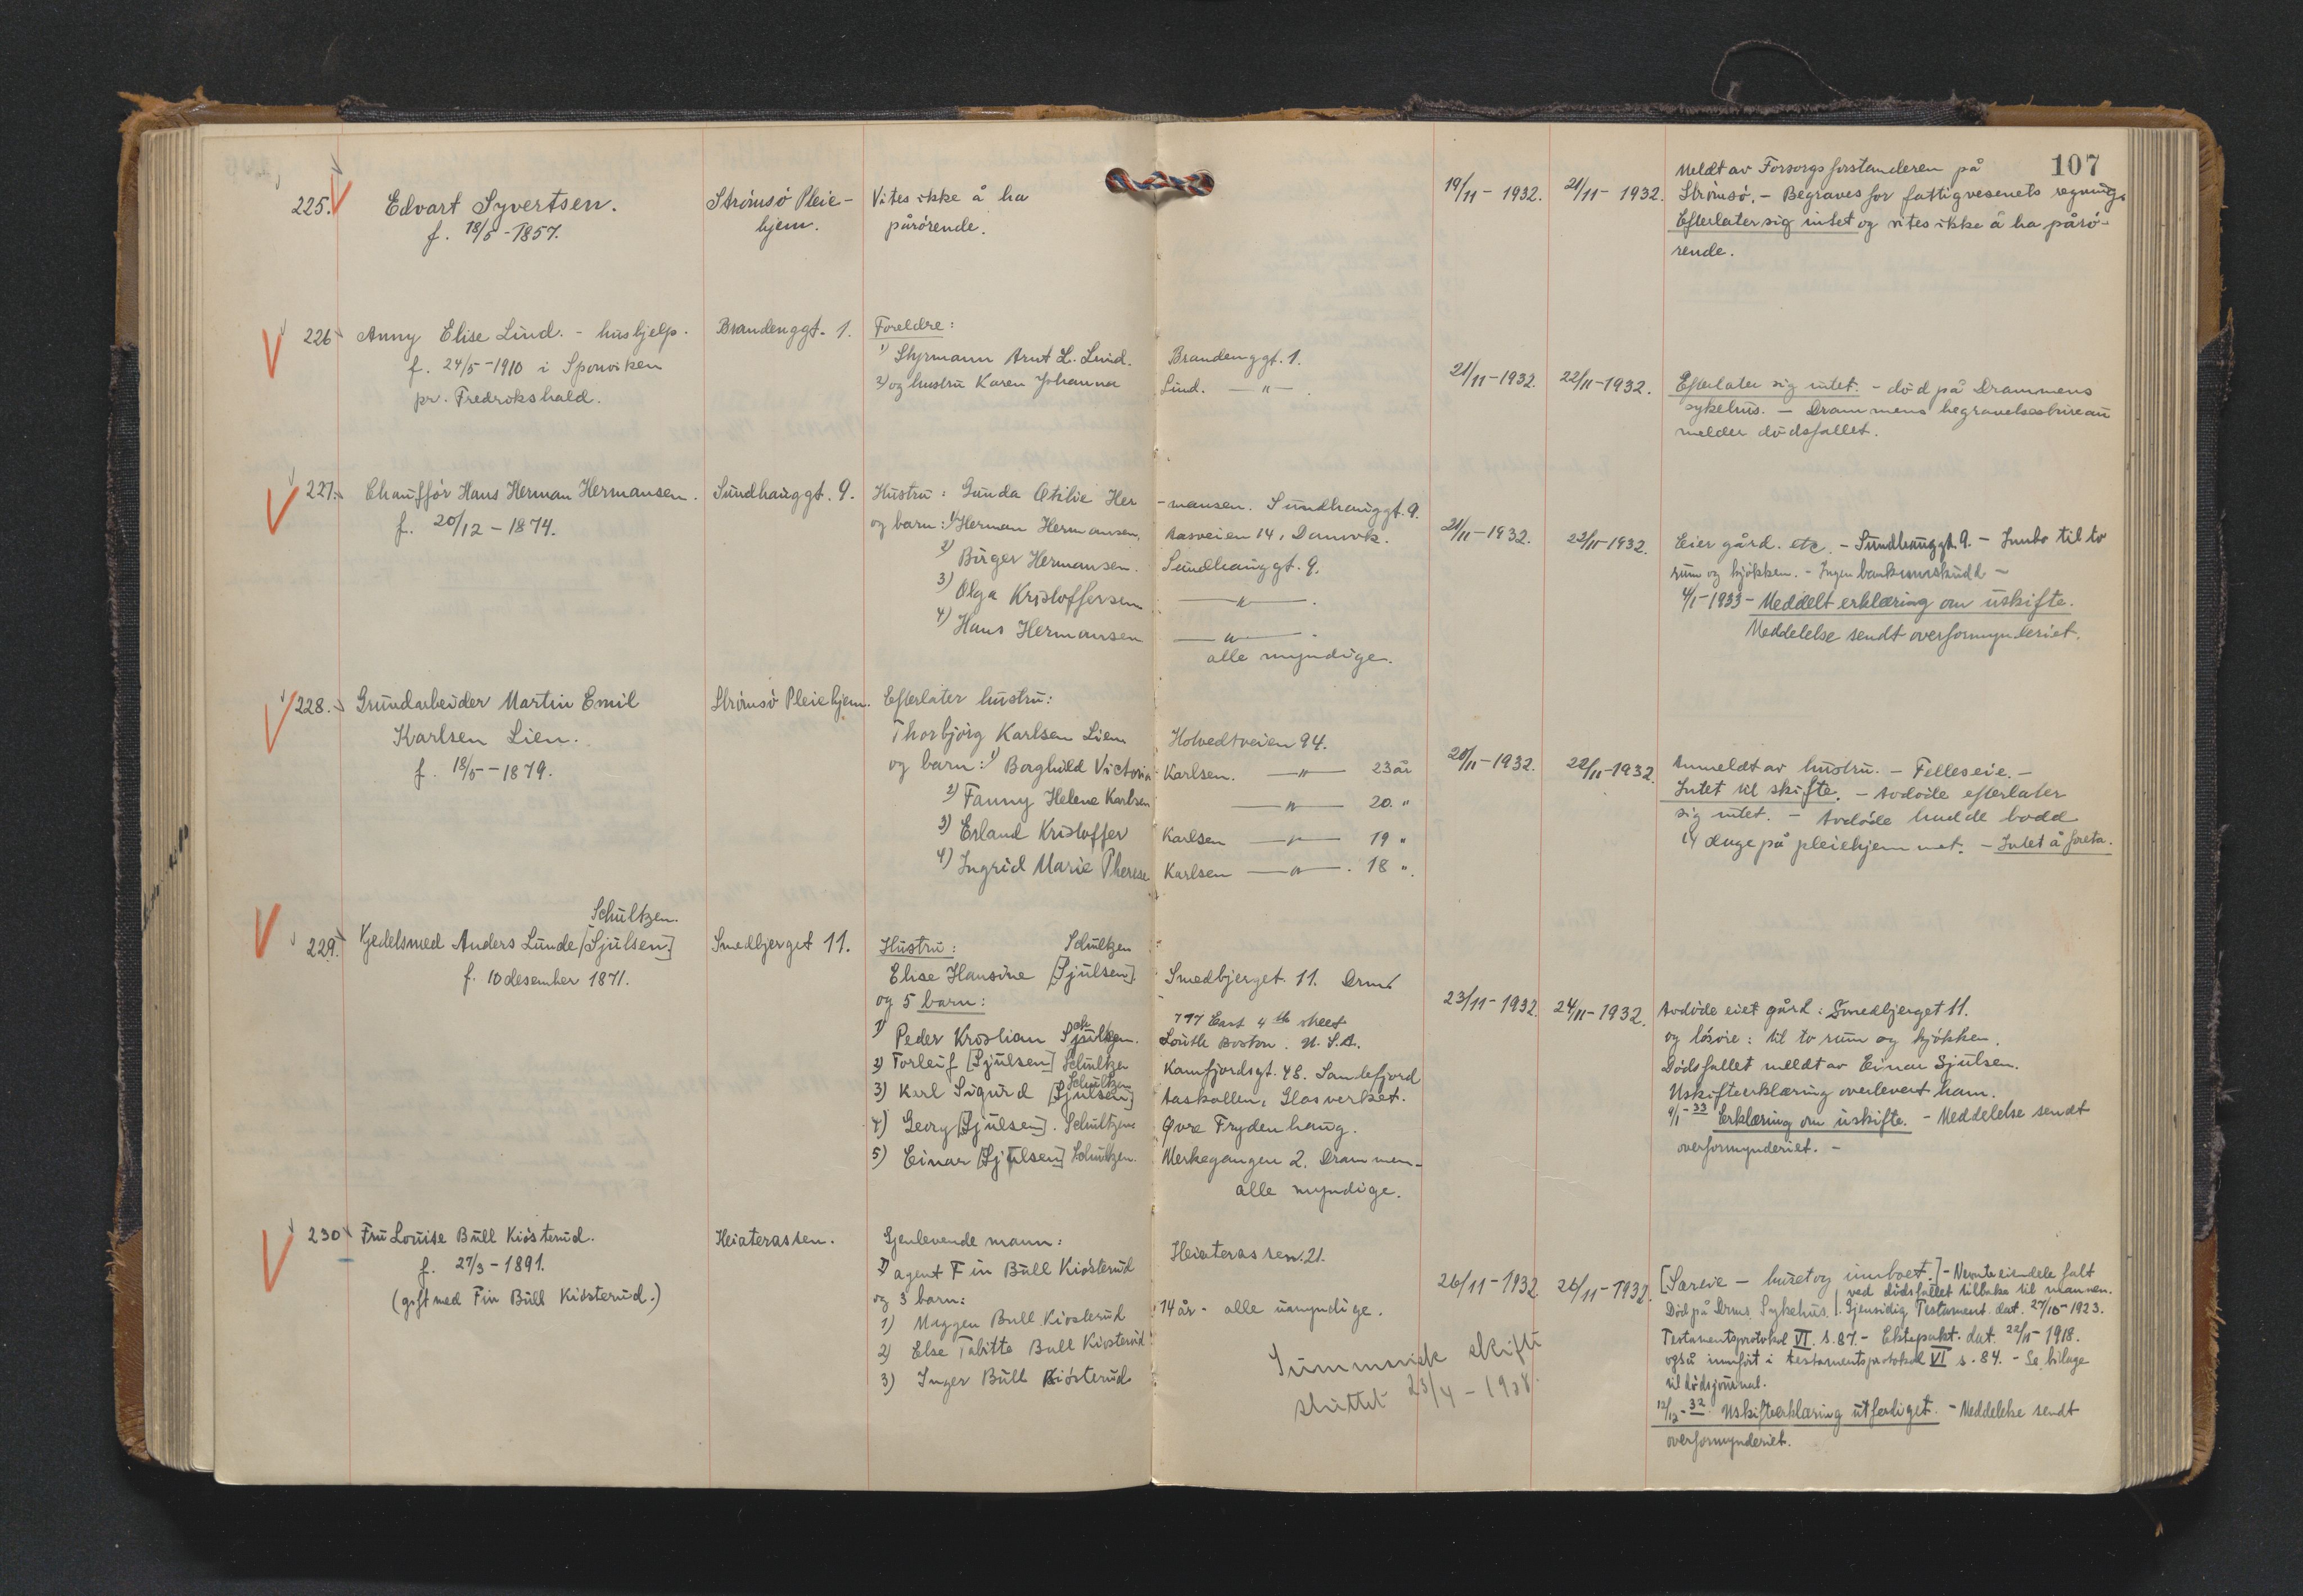 107
225. Edvart Syvertsen. Strömsö Pleie- Vites ikke å ha 19/11 - 1932. 21/11 - 1932. Meldt av Forsorgsforstanderen på
f. 18/5 - 1857. hjem. pårörende. Strömsö. - Begraves for fattigvesenets regning.
Efterlater sig intet og vites ikke å ha pårö-
rende.
226 Anny Elise Lind. - hushjelp. Brandenggt. 1. Foreldre:
f. 24/5 - 1910 i Sponviken 1) Styrmann Arnt L. Lind. Brandenggt. 1. 21/11 - 1932. 22/11 - 1932. Efterlater sig intet. - död på Drammens
pr. Fredrikshald. 2) og hustru Karen Johanna Lind. — " — sykehus. - Drammens begravelsesbureau
melder dödsfallet.
227. Chaufför Hans Herman Hermansen. Sundhauggt. 9. Hustru: Gunda Otilie Her -mansen. Sundhauggt. 9.
f. 20/12 - 1874. og barn: 1) Herman Hermansen. Aasveien 14, 21/11 - 1932. 22/11 - 1932. Eier gård. etc. - Sundhauggt. 9. - Innbo til to
2) Birger Hermansen. Sundhauggt. 9. rum og kjökken. - Ingen bankinnskudd -
3) Olga Kristoffersen — " — . 4/1 - 1933 - Meddelt erklæring om uskifte.
4) Hans Hermansen — " — . Meddelelse sendt overformynderiet.
alle myndige.
228. Grundarbeider Martin Emil Strömsö Pleiehjem. Efterlater hustru:
Karlsen Lien. Thorbjörg Karlsen Lien Holvedtveien 94.
f. 18/5 - 1879. og barn: 1) Borghild Victoria Karlsen. — " — 23 år 20/11 - 1932. 22/11 - 1932. Anmeldt av hustru. - Felleseie. -
2) Fanny Helene Karlsen — " — 20. " Intet til skifte. - Avdöde efterlater
3) Erland Kristoffer Karlsen — " — 19 " sig intet. - Avdöde hadde bodd
4) Ingrid Marie Therese Karlsen — " — . 18 ". 14 dage på pleiehjemmet. - Intet å foreta.
Schultzen.
229. Kjedelsmed Anders Lunde [Sjulsen] Smedbjerget 11. Hustru: Schultzen
f. 10 desember 1871. Elise Hansine [Sjulsen]. Smedbjerget. 11. Drm.
og 5 barn: 23/11 - 1932. 24/11 - 1932. Avdöde eiet gård: Smedbjerget 11.
1) Peder Kristian Schultzen. 777 East 4th street
South Boston. U.S.A. og lösöre: til to rum og kjökken.
2) Torleif [Sjulsen] Schultzen Kamfjordsgt. 48. Sandefjord Dödsfallet meldt av Einar Sjulsen.
3) Karl Sigurd [Sjulsen] Schultzen Aaskollen, Glasverket. Uskifteerklæring overlevert ham.
4) Georg [Sjulsen]. Schultzen Øvre Frydenhaug. 4/1 - 33 Erklæring om uskifte. - Meddelelse sendt
5) Einar [Sjulsen] Schultzen. Merkegangen 2. Drammen - overformynderiet. -
alle myndige.
230 Fru Louise Bull Kiösterud. Heiaterassen. Gjenlevende mann: Heiaterassen. 21.
f. 27/3 - 1891. 1) agent Fin Bull Kiösterud 26/11 - 1932 26/11 - 1932. [Særeie - huset og innboet.] - Nevnte eiendele falt
(gift med Fin Bull Kiösterud.) og 3 barn: ved dödsfallet tilbake til mannen.
1) Bull Kiösterud 14 år - alle umyndige. Död på Drms. Sykehus. Gjensidig Testament. dat. 27/10 - 1923.
2) Else Tabitta Bull Kiösterud Summarisk skifte Testamentsprotokol VI. s. 87. - Ektepakt. dat. 22/11 1918.
3) Inger Bull Kiösterud sluttet 23/4 - 1938. også innfört i testamentsprotokol VI s. 84. - Se bilage
til dödsjournal.
12/12 - 32. Uskifteerklæring utferdiget. - Meddelelse sendt
overformynderiet.